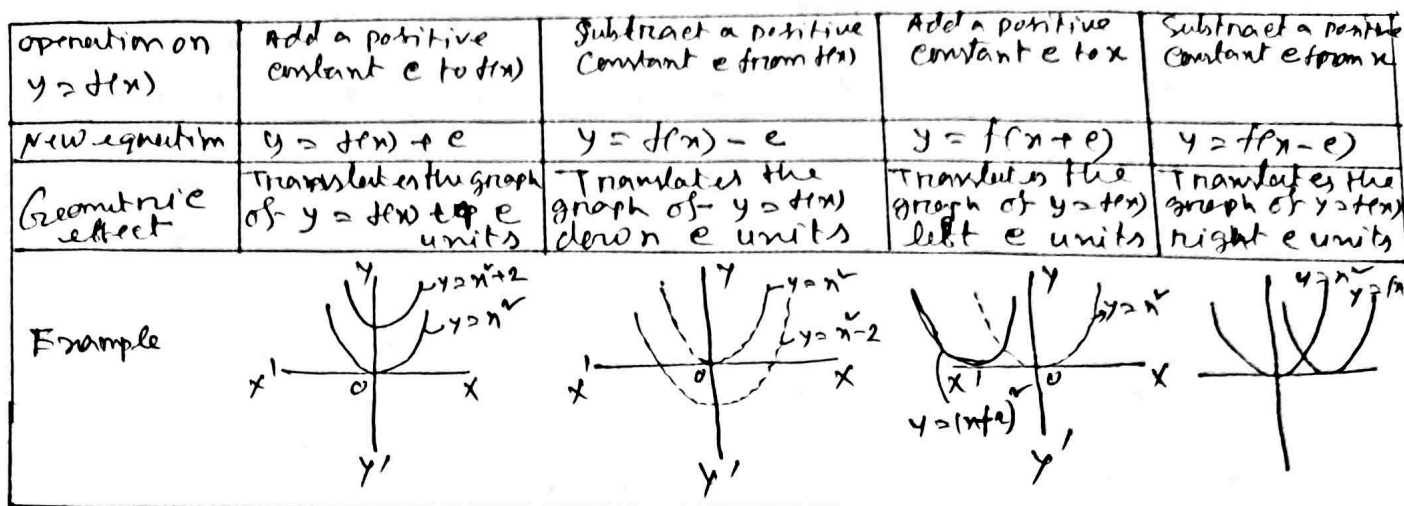 operation on
y = f(x)
Add a positive
constant c to f(x)
Subtract a positive
Constant c from f(x)
Add a positive
constant c to x
Subtract a positive
Constant c from x
New equation
y = f(x) + c
y = f(x) - c
y = f(x + c)
y = f(x - c)
Geometric
effect
Translates the graph
of y = f(x) up c
units
Translates the
graph of y = f(x)
down c units
Translates the
graph of y = f(x)
left c units
Translates the
graph of y = f(x)
right c units
Example
Y
y = x²+2
y = x²
X'
O
X
Y'
Y
y = x²
y = x²-2
X'
O
X
Y'
Y
y = x²
X'
O
X
y = (x+2)²
Y'
y = x²